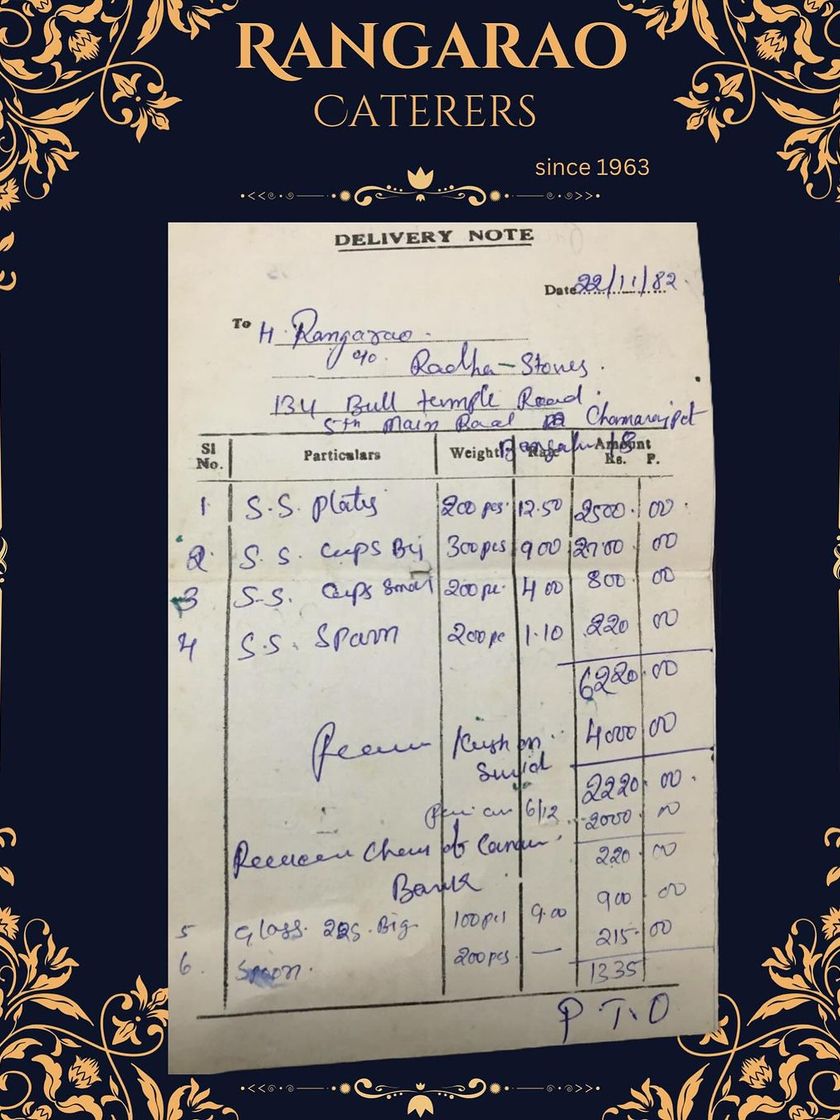 RANGARAO
CATERERS
since 1963
DELIVERY NOTE
Date 22/11/82.
To H. Rangarao.
c/o. Radha - Stores.
134 Bull temple Road.
5th Main Road Chamarajpet
Sl No. Particulars Weight Rate Amount Rs. P.
1. S.S. plates 200 pcs 12.50 2500. 00
2. S.S. Cups Big 300 pcs 9 00 2700 00
3 S.S. Cups Small 200 pc. 4 00 800. 00
4 S.S. Spoon 200 pc 1.10 220 00
6220.00
4000 00
2220 00.
6/12 2000 00
220 00
Bank
900 00
5 Glass 225. Big 100 pcs 9.00
215.00
6. Spoon. 200 pcs. —
1335
P.T.O